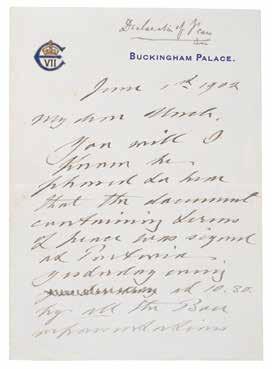 Declaration of Peace
VII
BUCKINGHAM PALACE.
June 1st 1902
My dear Uncle,
You will I
know be
pleased to hear
that the document
containing terms
of peace was signed
at Pretoria
yesterday evening
at 10.30.
by all the Boer
representatives